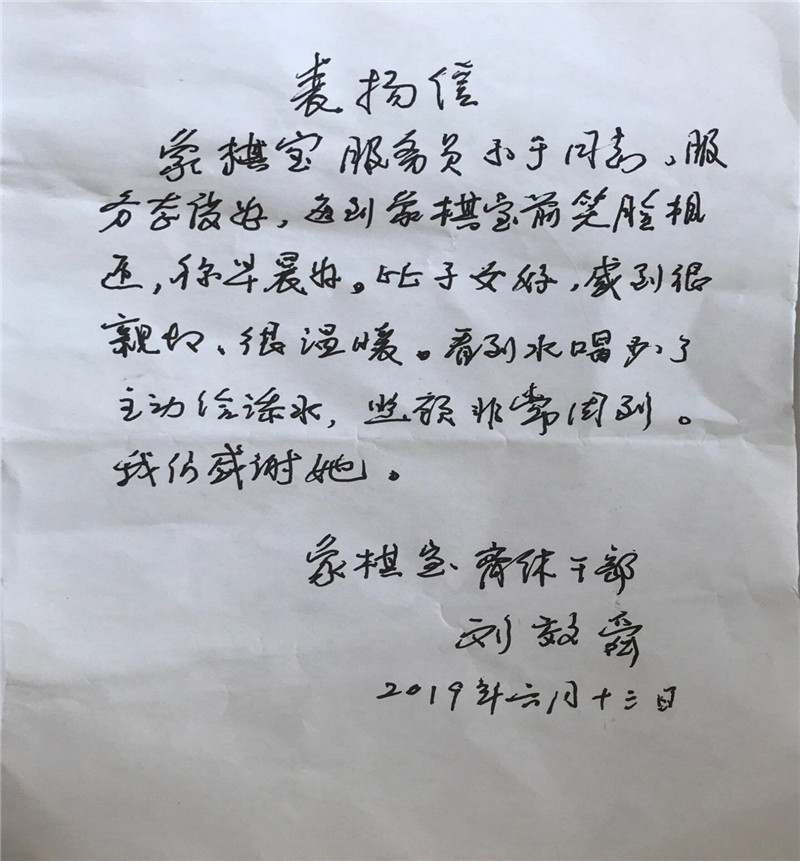 表扬信
象棋室服务员小于同志，服
务态度好，每到象棋室前笑脸相
迎，称早晨好。比子女好，感到很
亲切、很温暖。看到水喝少了
主动给添水，照顾非常周到。
我们感谢她。
象棋室离休干部
刘效舜
2019年六月十三日